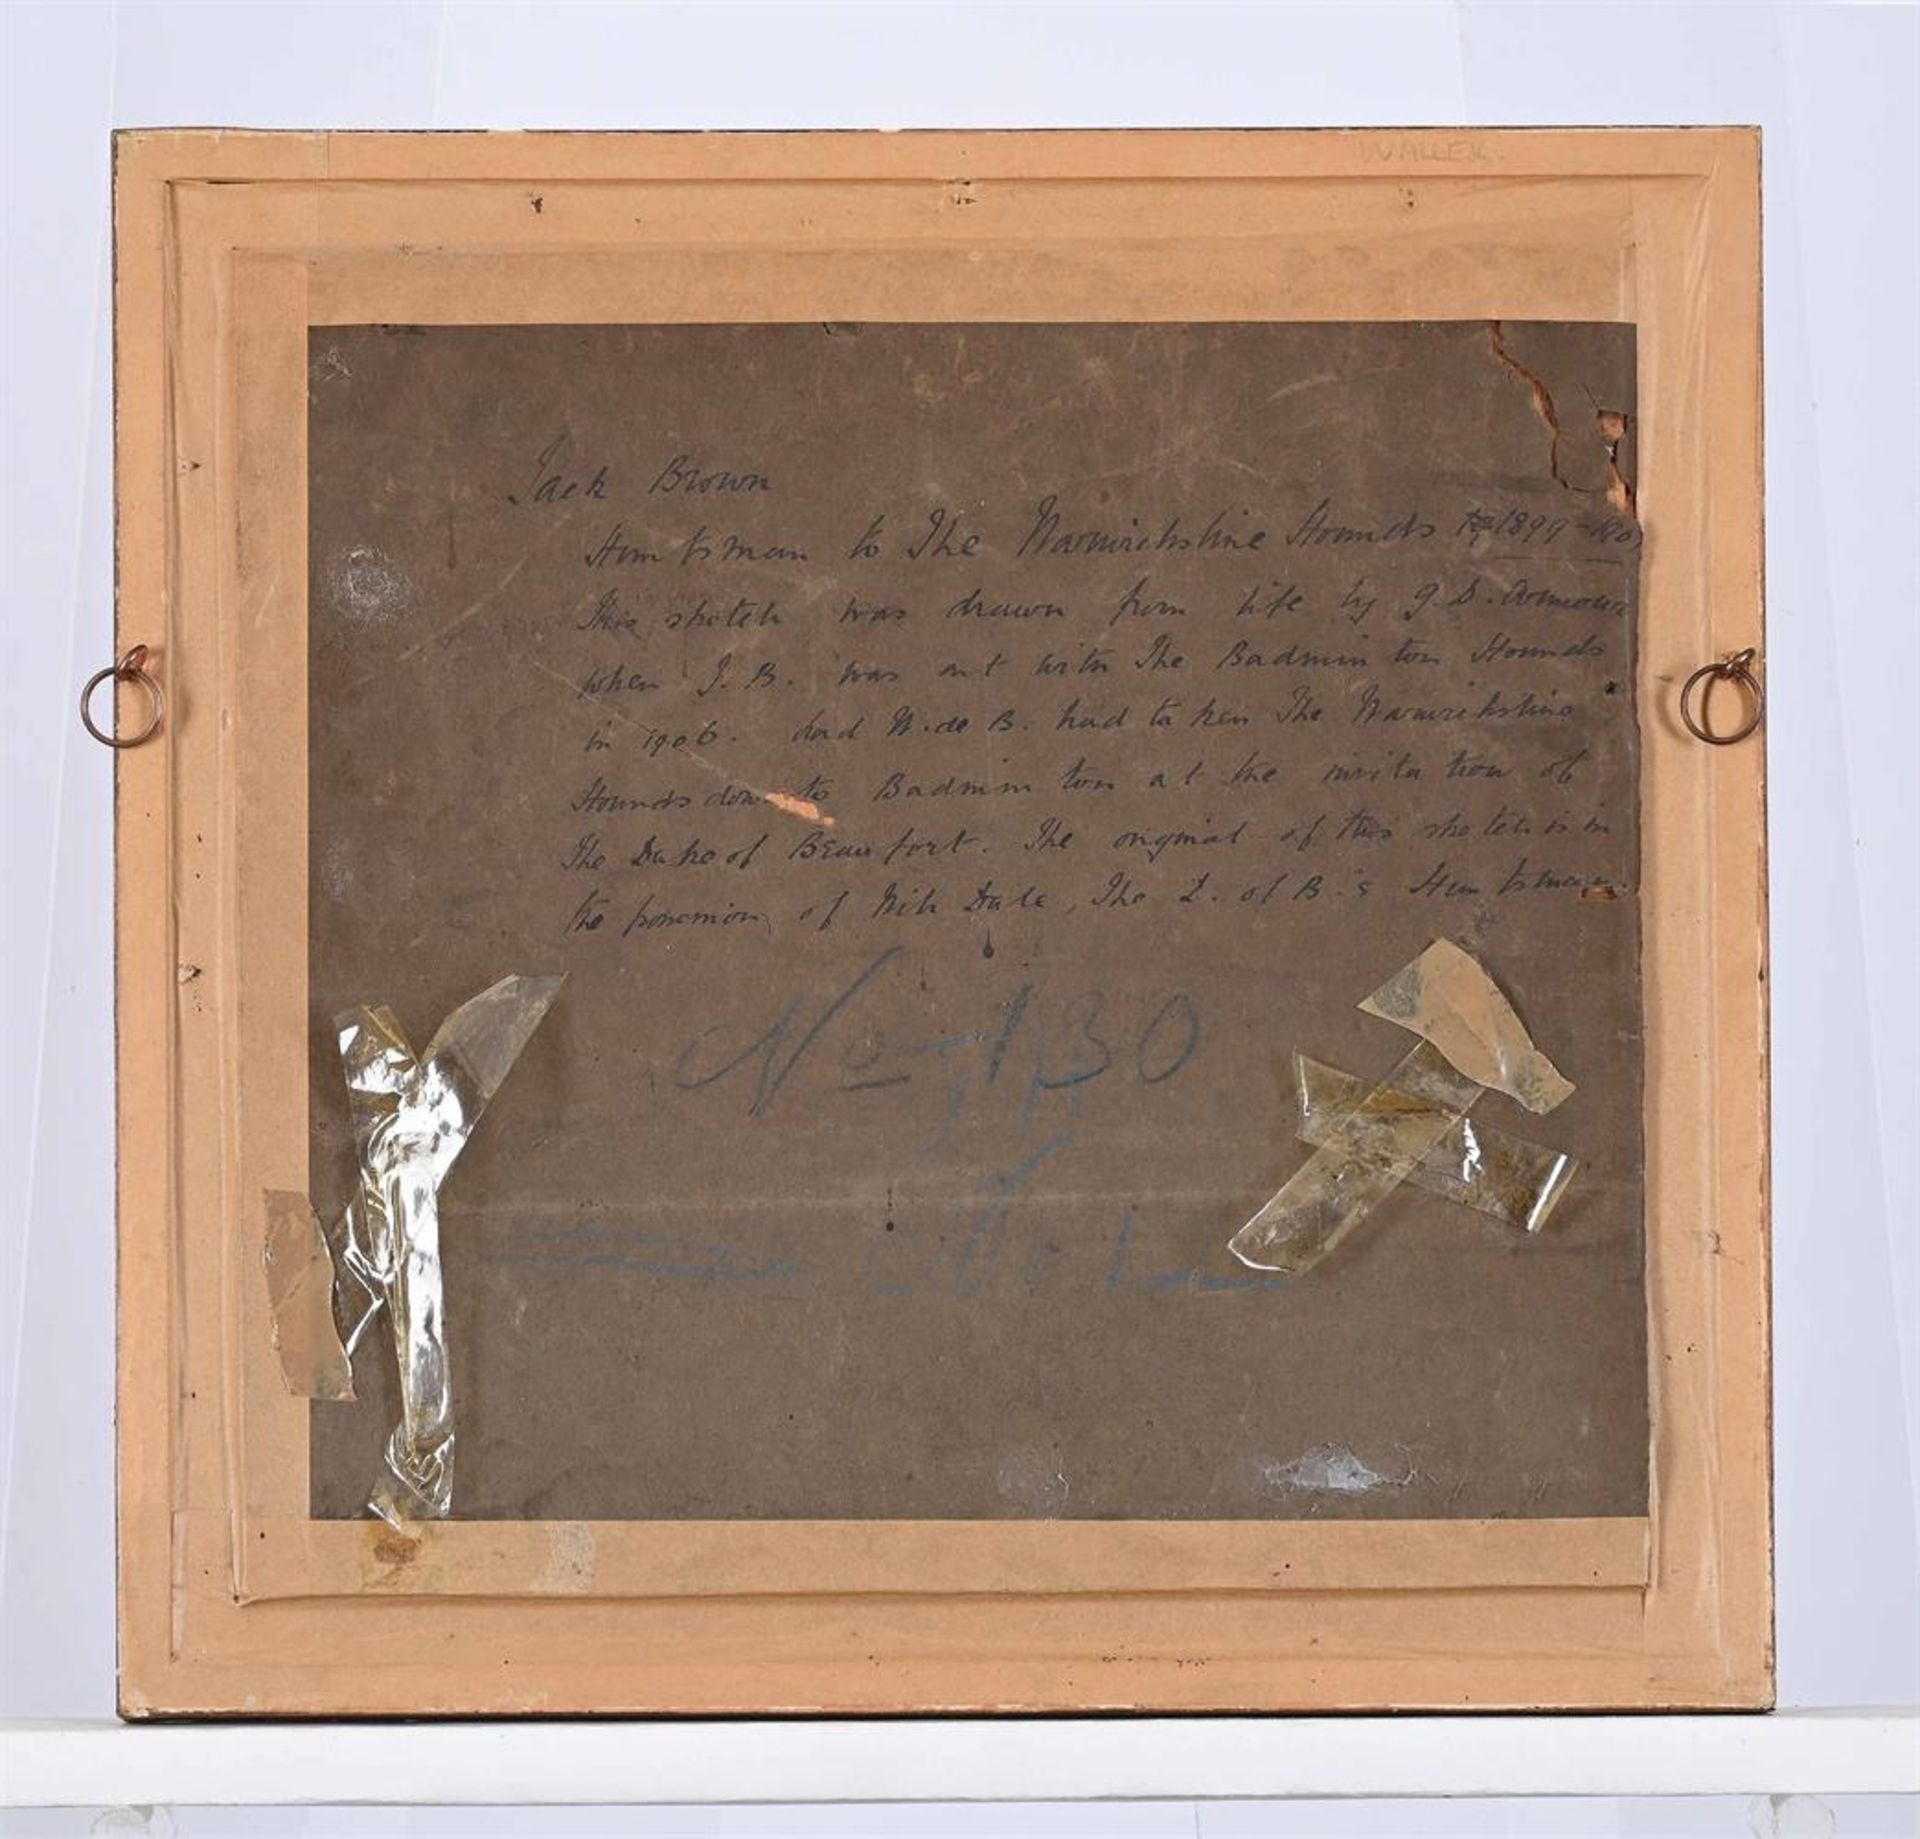 WALLER.
Jack Brown
Huntsman to The Warwickshire Hounds 1899-190
This sketch was drawn from life by G.D. Armour
when J.B. was out with The Badminton Hounds
in 1906. Lord W. de B. had taken The Warwickshire
Hounds down to Badminton at the invitation of
The Duke of Beaufort. The original of this sketch is in
the possession of Will Dale, The D. of B.'s Huntsman.
No 130